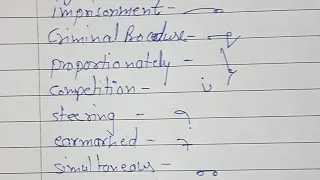 imprisonment -
Criminal Procedure -
proportionately -
competition -
steering -
earmarked -
simultaneous -